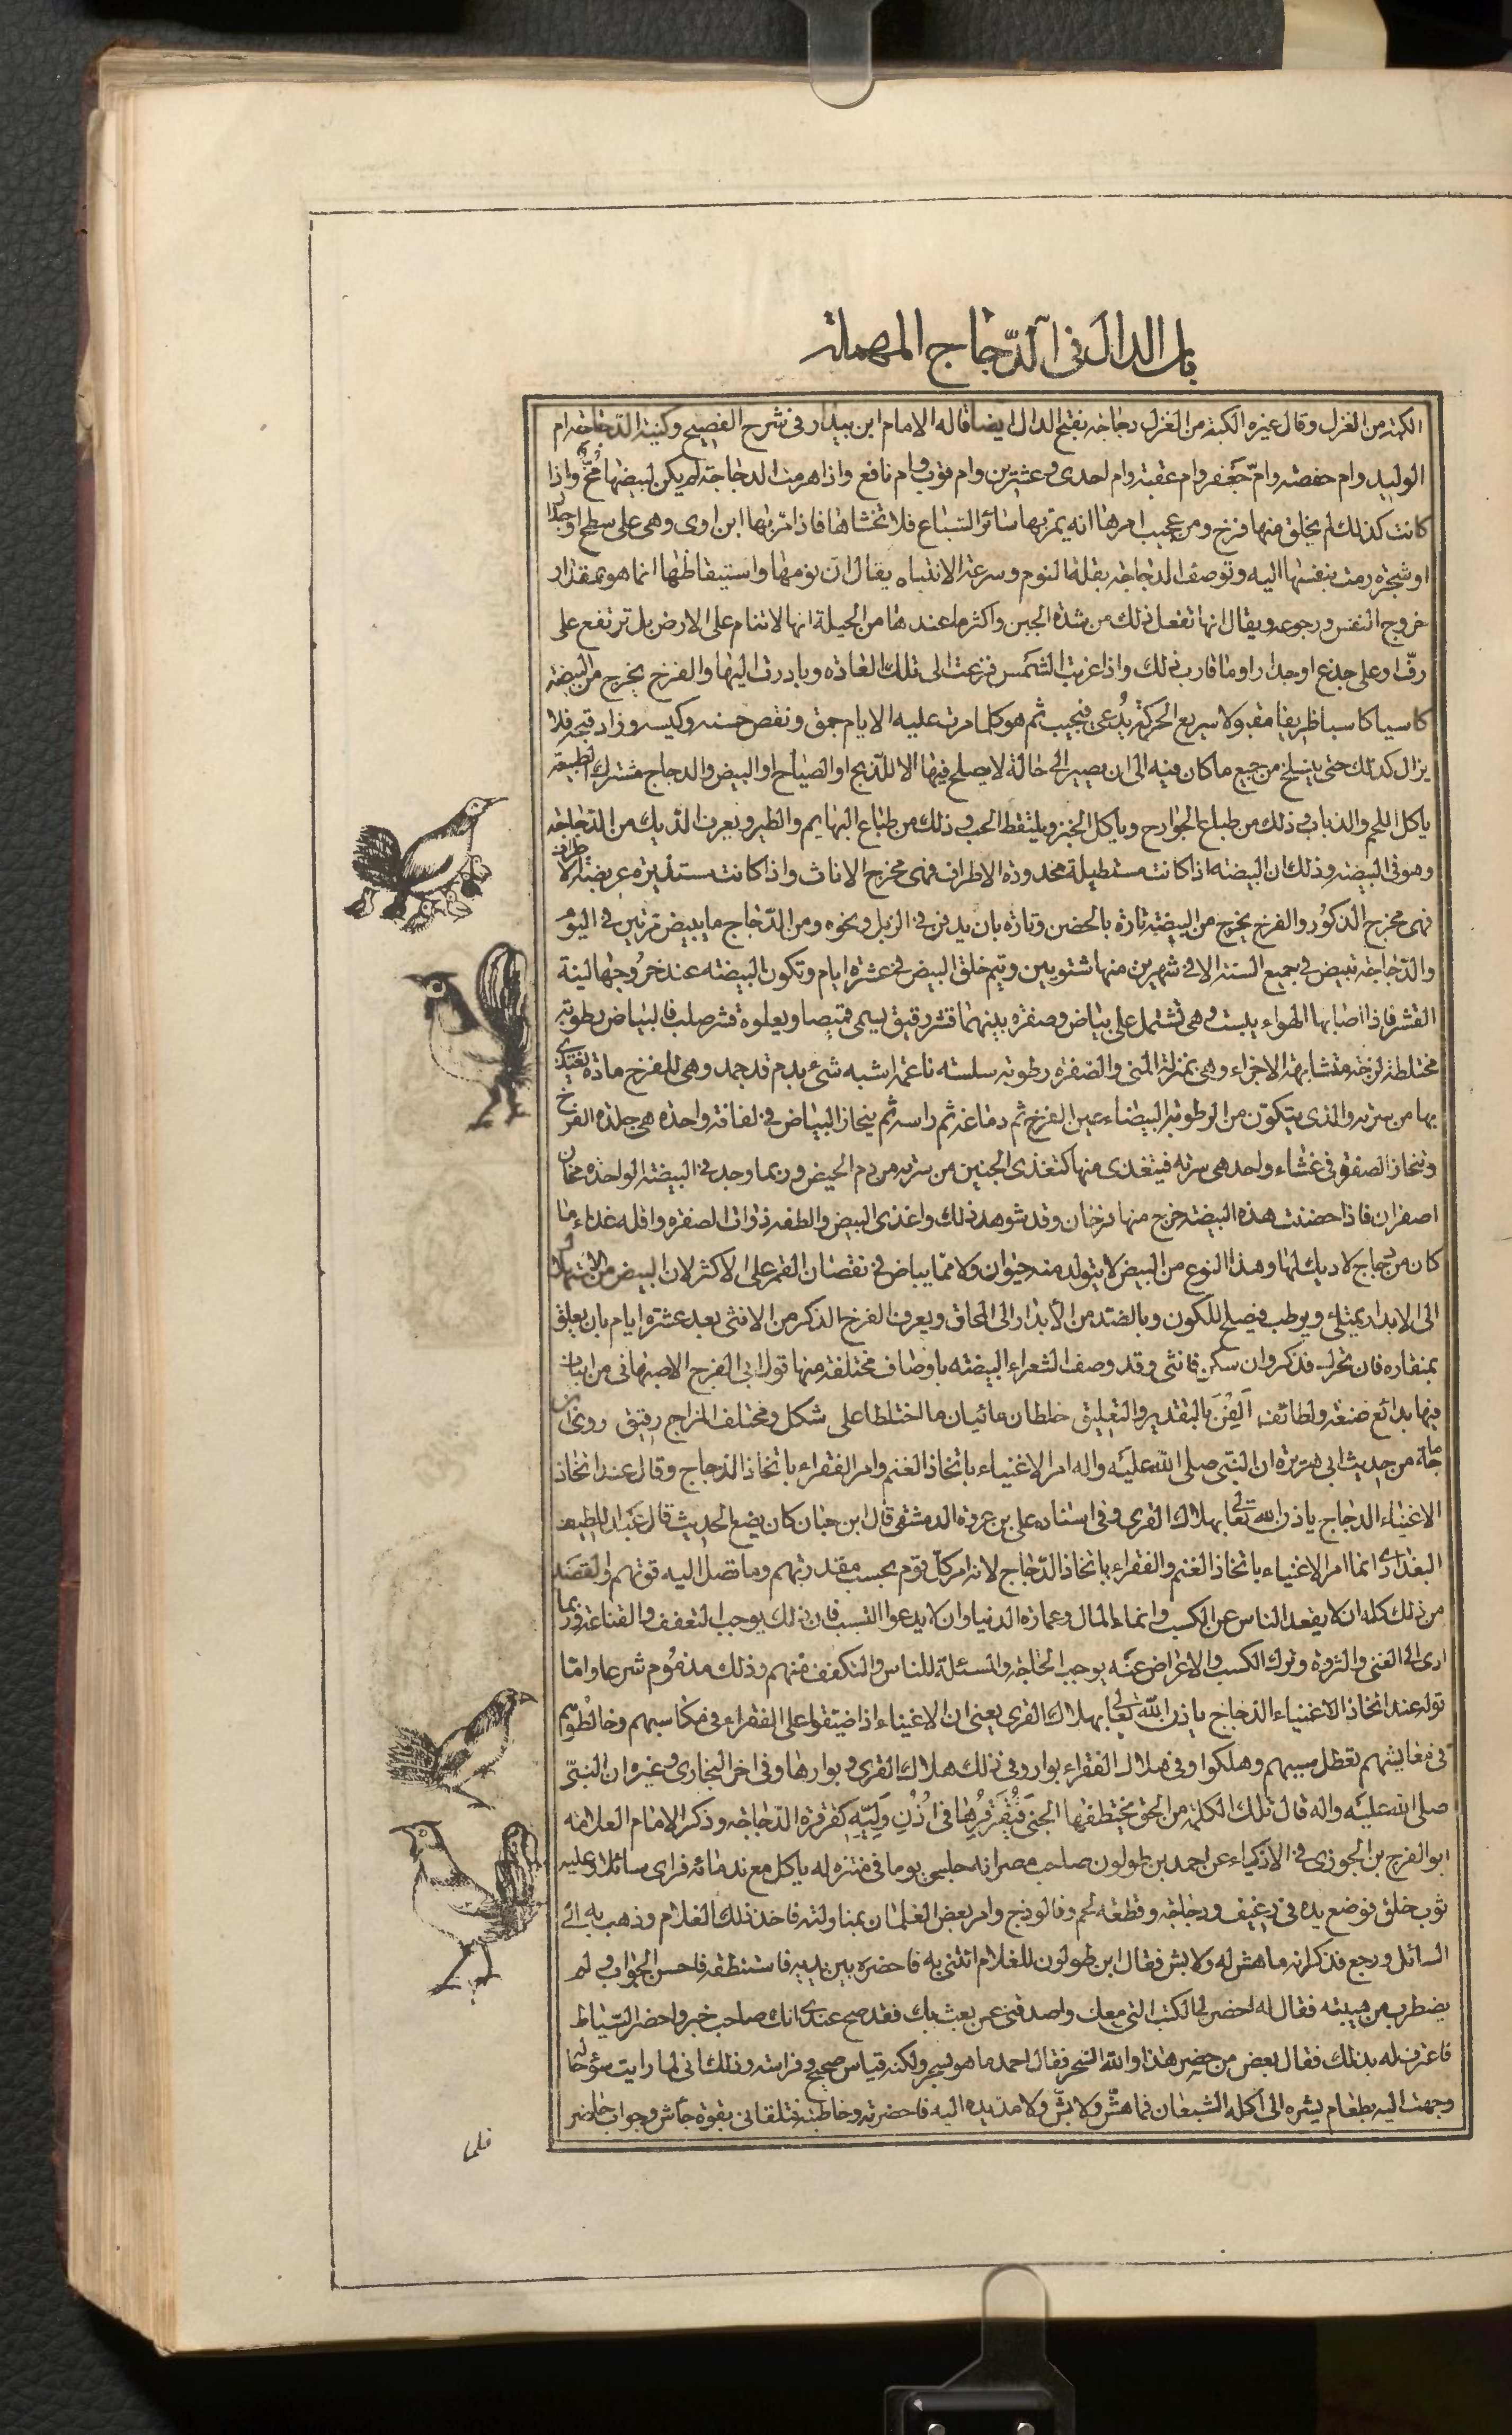 باب الدال فی الدّجاج المهملة
الكبة من الغزل وقال غيره الكبة من الغزل دجاجة بفتح الدال ايضا قاله الامام ابن بيدار فى شرح الفصيح وكنية الدّجاجة ام
الوليد وام حفصة وامّ جَعفر وام عقبة وام احدى و عشرين وام قوب وام نافع واذا هرمت الدجاجة لم يكن لبيضها مُخّ واذا
كانت كذلك لم يخلق منها فرخ ومن عجيب امرها انه يمرّ بها سائر السّباع فلا تخشاها فاذا مرّ بها ابن اوى وهى على سطح او جدار
او شجرة رمت بنفسها اليه وتوصف الدجاجة بقلة النوم وسرعة الانتباه يقال ان نومها واستيقاظها انما هو بمقدار
خروج النفس ورجوعه ويقال انها تفعل ذلك من شدة الجبن واكثر ما عندها من الحيلة انها لا تنام على الارض بل ترتفع على
رفّ او على جذع او جدار او ما قارب ذلك واذا غربت الشَمس فزعت الى تلك العادة وبادرت اليها والفرخ يخرج من البيضة
كاسيا كاسبا ظريفا مقبولا سريع الحركة يُدعى فيجيب ثم هو كلما مرت عليه الايام حمق ونقص حسنه وكيسه وزاد قبحه فلا
يزال كذلك حتى ينسلخ من جميع ما كان فيه الى ان يصير الى حالة لا يصلح فيها الا للذّبح او الصياح او البيض والدجاج مشترك الطبيعة
ياكل اللحم والذباب و ذلك من طباع الجوارح وياكل الخبز ويلتقط الحب و ذلك من طباع البهايم والطير ويعرف الدّيك من الدّجاجة
وهو فى البيضة وذلك ان البيضة اذا كانت مستطيلة محدودة الاطراف فهى مخرج الاناث واذا كانت مستديرة عريضة الاطراف
فهى مخرج الذكُور والفرخ يخرج من البيضة تارة بالحضن وتارة بان يدفن فى الزبل ونحوه ومن الدّجاج ما يبيض مرتين فى اليوم
والدّجاجة تبيض فى جميع السنة الا فى شهرين منها شتويين ويتم خلق البيض فى عشرة ايام وتكون البيضة عند خروجها لينة
القشر فاذا اصابها الهواء يبست و هى تشتمل على بياض وصفرة بينهما قشر رقيق يسمى قميصا ويعلوه قشر صلب فالبياض رطوبة
مختلطة لزجة متشابهة الاجزاء وهى بمنزلة المنى والصّفرة رطوبة سلسة ناعمة اشبه شىء بدم قد جمد وهى للفرخ مادة يغتذى
بها من سرته والذى يتكوّن من الرطوبة البيضاء عين الفرخ ثم دماغه ثم راسه ثم ينحاز البياض فى لفافة واحدة هى جلدة الفرخ
وتنحاز الصفرة فى غشاء واحد هى سرته فيتغذى منها كتغذى الجنين من سرته من دم الحيض وربما وجد فى البيضة الواحدة مخان
اصفران فاذا حضنت هذه البيضة خرج منها فرخان وقد شوهد ذلك واغذى البيض والطفه ذوات الصفرة واقله غذاء ما
كان من دجاج لا ديك لها وهذا النوع من البيض لا يتولد منه حيوان ولا مما يباض فى نقصان القمر على الاكثر لان البيض من الاستهلال
الى الابدار يمتلى ويرطب فيصلح للكون وبالضد من الابدار الى المحاق ويعرف الفرخ الذكر من الانثى بعد عشرة ايام بان يعلق
بمنقاره فان تحرك فذكر وان سكن فانثى وقد وصف الشعراء البيضة باوصاف مختلفة منها قول ابى الفرج الاصبهانى من ابيات
فيها بدائع صنعة ولطائف اَلِفْنَ بالتقدير والتعليق خلطان مائيان ما اختلطا على شكل ومختلف المزاج رقيق روى ابن
ماجة من حديث ابى هريرة ان النبّى صلى اللّٰه عليَه واله امر الاغنياء باتخاذ الغنم وامر الفقراء باتخاذ الدّجاج وقال عند اتخاذ
الاغنياء الدجاج ياذن اللّٰه تعالى بهلاك القرى و فى اسناده على بن عروة الدمشقى قال ابن حبان كان يضع الحديث قال عَبد اللطيف
البغدادى انما امر الاغنياء باتخاذ الغنم والفقراء باتخاذ الدّجاج لانه امر كلّ قوم بحسب مقدرتهم وما تصل اليه قوتهم والقصد
من ذلك كله ان لا يقعد الناس عن الكسب وانماء المال وعمارة الدنيا وان لا يدعوا التسبب فان ذلك يوجب التعفف و القناعة وربما
ادى الى الغنى والثروة وترك الكسب والاعراض عنَه يوجب الحاجة والمسئلة للناس والتكفف منهم وذلك مذمُوم شرعا وامّا
قوله عند اتخاذ الاغنياء الدجاج ياذن اللّٰه تعالى بهلاك القرى يعنى ان الاغنياء اذا ضيّقوا على الفقراء فى مكاسبهم وخالطُوهم
فى معايشهم تعطل سببهم وهلكوا و فى هلاك الفقراء بوار و فى ذلك هلاك القرى و بوارها و فى اخر البخارى و غيره ان النبّى
صلى اللّٰه عليَه واله قال تلك الكلمة من الحق يختطفها الجنى فَيُقَرْقِرُها فى اُذُنِ وَلِيِّهِ كقرقرة الدّجاجة وذكر الامام العلامة
ابو الفرج بن الجوزى فى الاذكياء عن احمد بن طولون صاحب مصر انه جلس يوما فى متنزه له ياكل مع ندمائه فراى سائلا و عليه
ثوب خلق فوضع يده فى رغيف ودجاجة وقطعة لحم وفالوذج وامر بعض الغلمان بمناولته فاخذ ذلك الغلام وذهب به الى
السائل ورجع فذكر انه ما هش له ولا بش فقال ابن طولون للغلام ائتنى به فاحضره بين يديه فاستنطقه فاحسن الجواب و لم
يضطرب من هيبته فقال له احضر لى الكتب التى معك واصدقنى عن بعث بك فقد صح عندى انك صاحب خبر واحضر السّياط
فاعترف له بذلك فقال بعض من حضر هذا واللّٰه السّحر فقال احمد ما هو بسحر ولكنه قياس صحيح و فراسة وذلك انى لما رايت سؤ حاله
وجهت اليه بطعام يشره الى اكله الشبعان فما هشّ ولا بشّ ولا مد يده اليه فاحضرته وخاطبته فتلقانى بقوة جأش وجواب حاضر
فلما